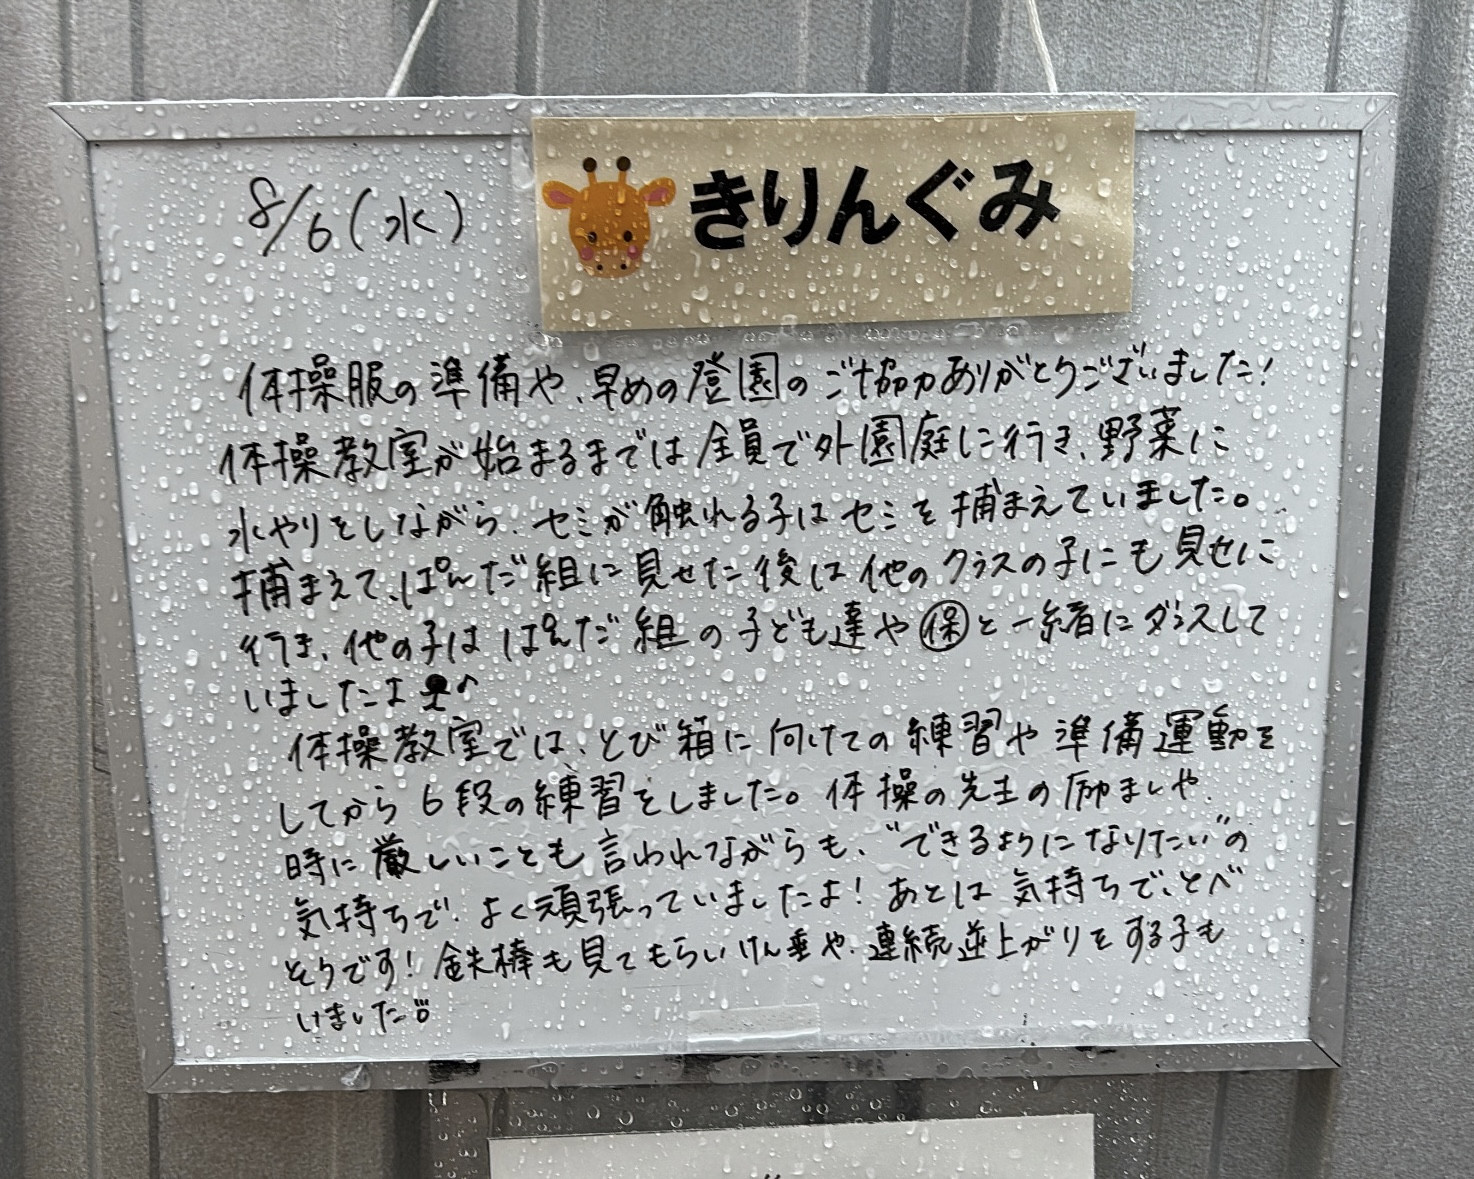 8/6(水)
きりんぐみ
体操服の準備や、早めの登園のご協力ありがとうございました!
体操教室が始まるまでは全員で外園庭に行き、野菜に
水やりをしながら、セミが触れる子はセミを捕まえていました。
捕まえて、ぱんだ組に見せた後は他のクラスの子にも見せに
行き、他の子はぱんだ組の子ども達や㋭と一緒にダンスして
いましたよ♪
体操教室では、とび箱に向けての練習や準備運動を
してから6段の練習をしました。体操の先生の励ましや、
時に厳しいことも言われながらも、"できるようになりたい"の
気持ちで、よく頑張っていましたよ!あとは気持ちで、とべ
そうです!鉄棒も見てもらいけん垂や、連続逆上がりをする子も
いました!!